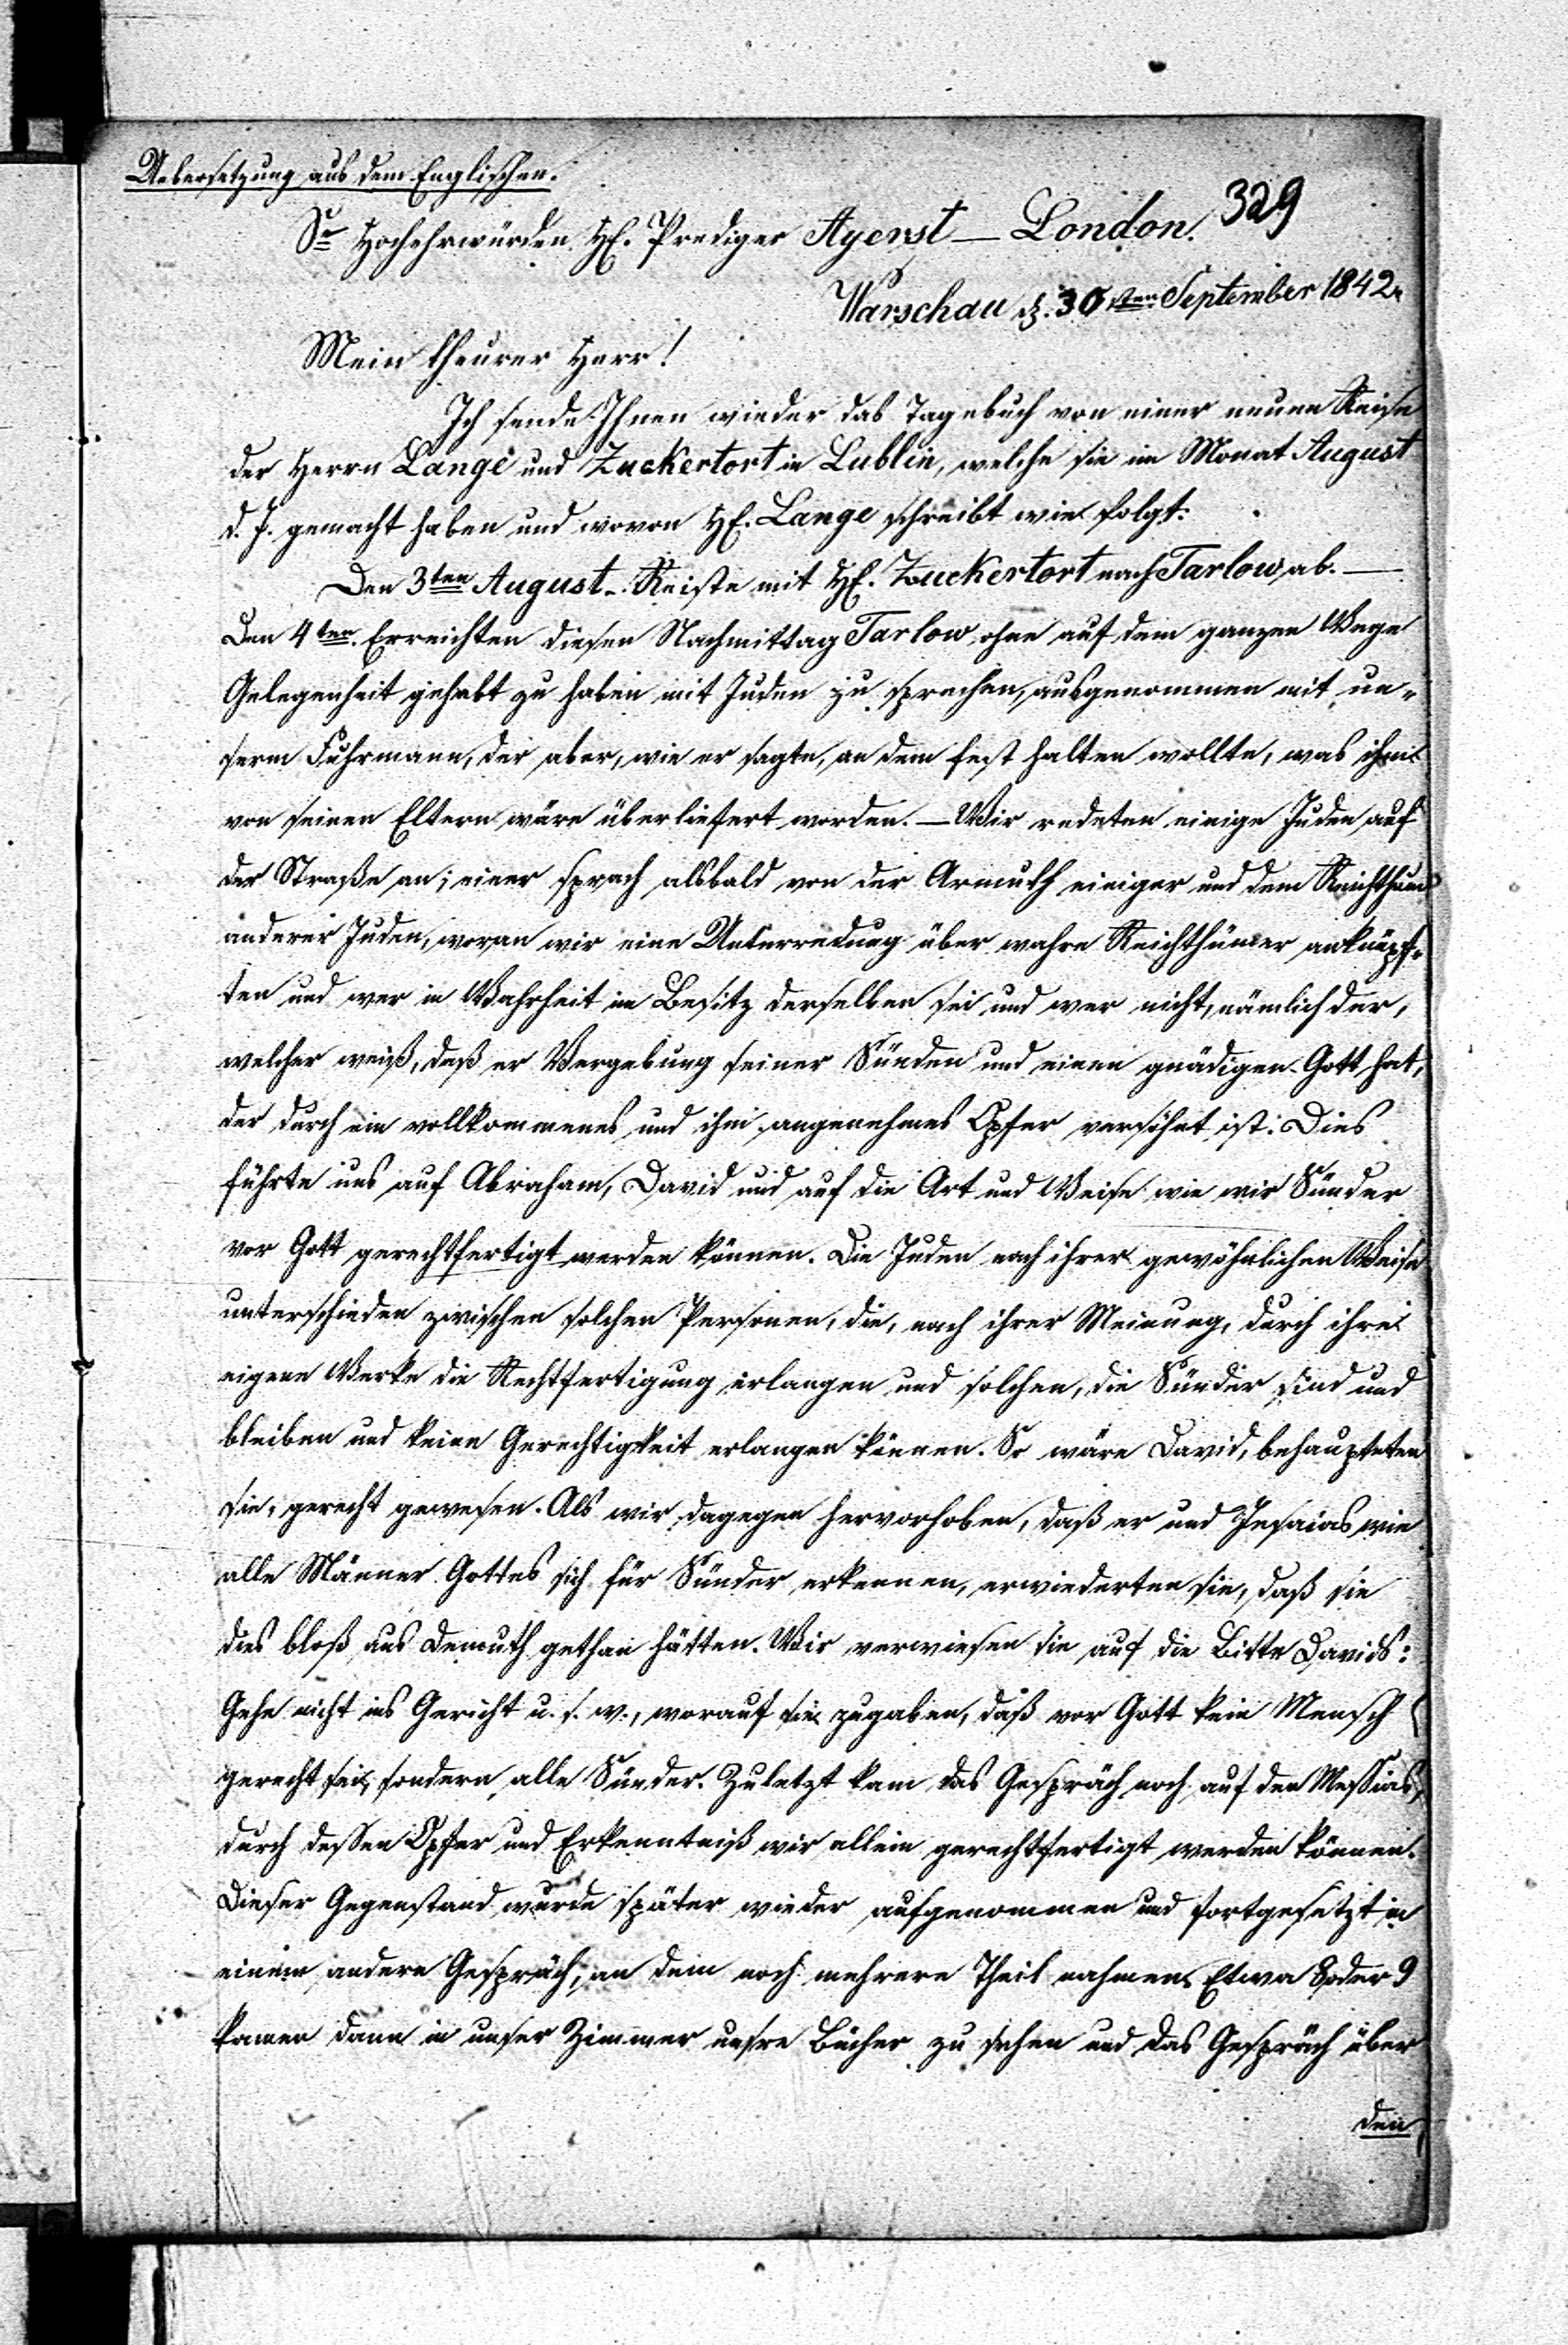 Uebersetzung aus dem Englischen.
329
Sr Hochehrwürden H. Prediger Ayerst — London.
Warschau d. 30sten September 1842.
Mein theurer Herr!
Ich sende Ihnen wieder das Tagebuch von einer neuen Reise
der Herrn Lange und Zuckertort in Lublin, welche sie im Monat August
d. J. gemacht haben und wovon H. Lange schreibt wie folgt:
Den 3ten August. Reiste mit H. Zuckertort nach Tarlow ab. —
Den 4ten. Erreichten diesen Nachmittag Tarlow, ohne auf dem ganzen Wege
Gelegenheit gehabt zu haben mit Juden zu sprechen, ausgenommen mit un-
serm Fuhrmann, der aber, wie er sagte, an dem fest halten wollte, was ihm
von seinen Eltern wäre überliefert worden. — Wir redeten einige Juden auf
der Straße an; einer sprach alsbald von der Armuth einiger und dem Reichthum
anderer Juden, woran wir eine Unterredung über wahre Reichthümer anknüpf-
ten und wer in Wahrheit im Besitz derselben sei und wer nicht, nämlich der,
welcher weiß, daß er Vergebung seiner Sünden und einen gnädigen Gott hat,
der durch ein vollkommenes und ihm angenehmes Opfer versöhnt ist. Dies
führte uns auf Abraham, David und auf die Art und Weise wie wir Sünder
vor Gott gerechtfertigt werden können. Die Juden nach ihrer gewöhnlichen Weise
unterschieden zwischen solchen Personen, die, nach ihrer Meinung, durch ihre
eigene Werke die Rechtfertigung erlangen und solchen, die Sünder sind und
bleiben und keine Gerechtigkeit erlangen können. So wäre David, behaupteten
sie, gerecht gewesen. Als wir dagegen hervorhoben, daß er und Jesaias wie
alle Männer Gottes sich für Sünder erkennen, erwiederten sie, daß sie
dies bloß aus Demuth gethan hätten. Wir verwiesen sie auf die Bitte Davids:
Gehe nicht ins Gericht u. s. w., worauf sie zugaben, daß vor Gott kein Mensch
gerecht sei, sondern alle Sünder. Zuletzt kam das Gespräch noch auf den Messias,
durch dessen Opfer und Erkenntniß wir allein gerechtfertigt werden können.
Dieser Gegenstand wurde später wieder aufgenommen und fortgesetzt in
einem andern Gespräch, an dem noch mehrere Theil nahmen. Etwa 8 oder 9
kamen dann in unser Zimmer unsre Bücher zu sehen und das Gespräch über
den